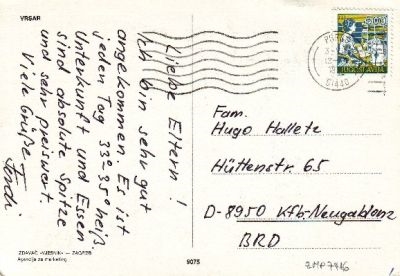 VRSAR
Liebe Eltern!
Ich bin sehr gut
angekommen. Es ist
jeden Tag 33°-35° heiß.
Unterkunft und Essen
sind absolute Spitze
und sehr preiswert.
Viele Grüße
Ferdi
ZDAVAČ «VJESNIK» — ZAGREB
Agencija za marketing
9075
JUGOSLAVIJA
Fam.
Hugo Hallete
Hüttenstr. 65
D-8950 Kfb-Neugablonz
BRD